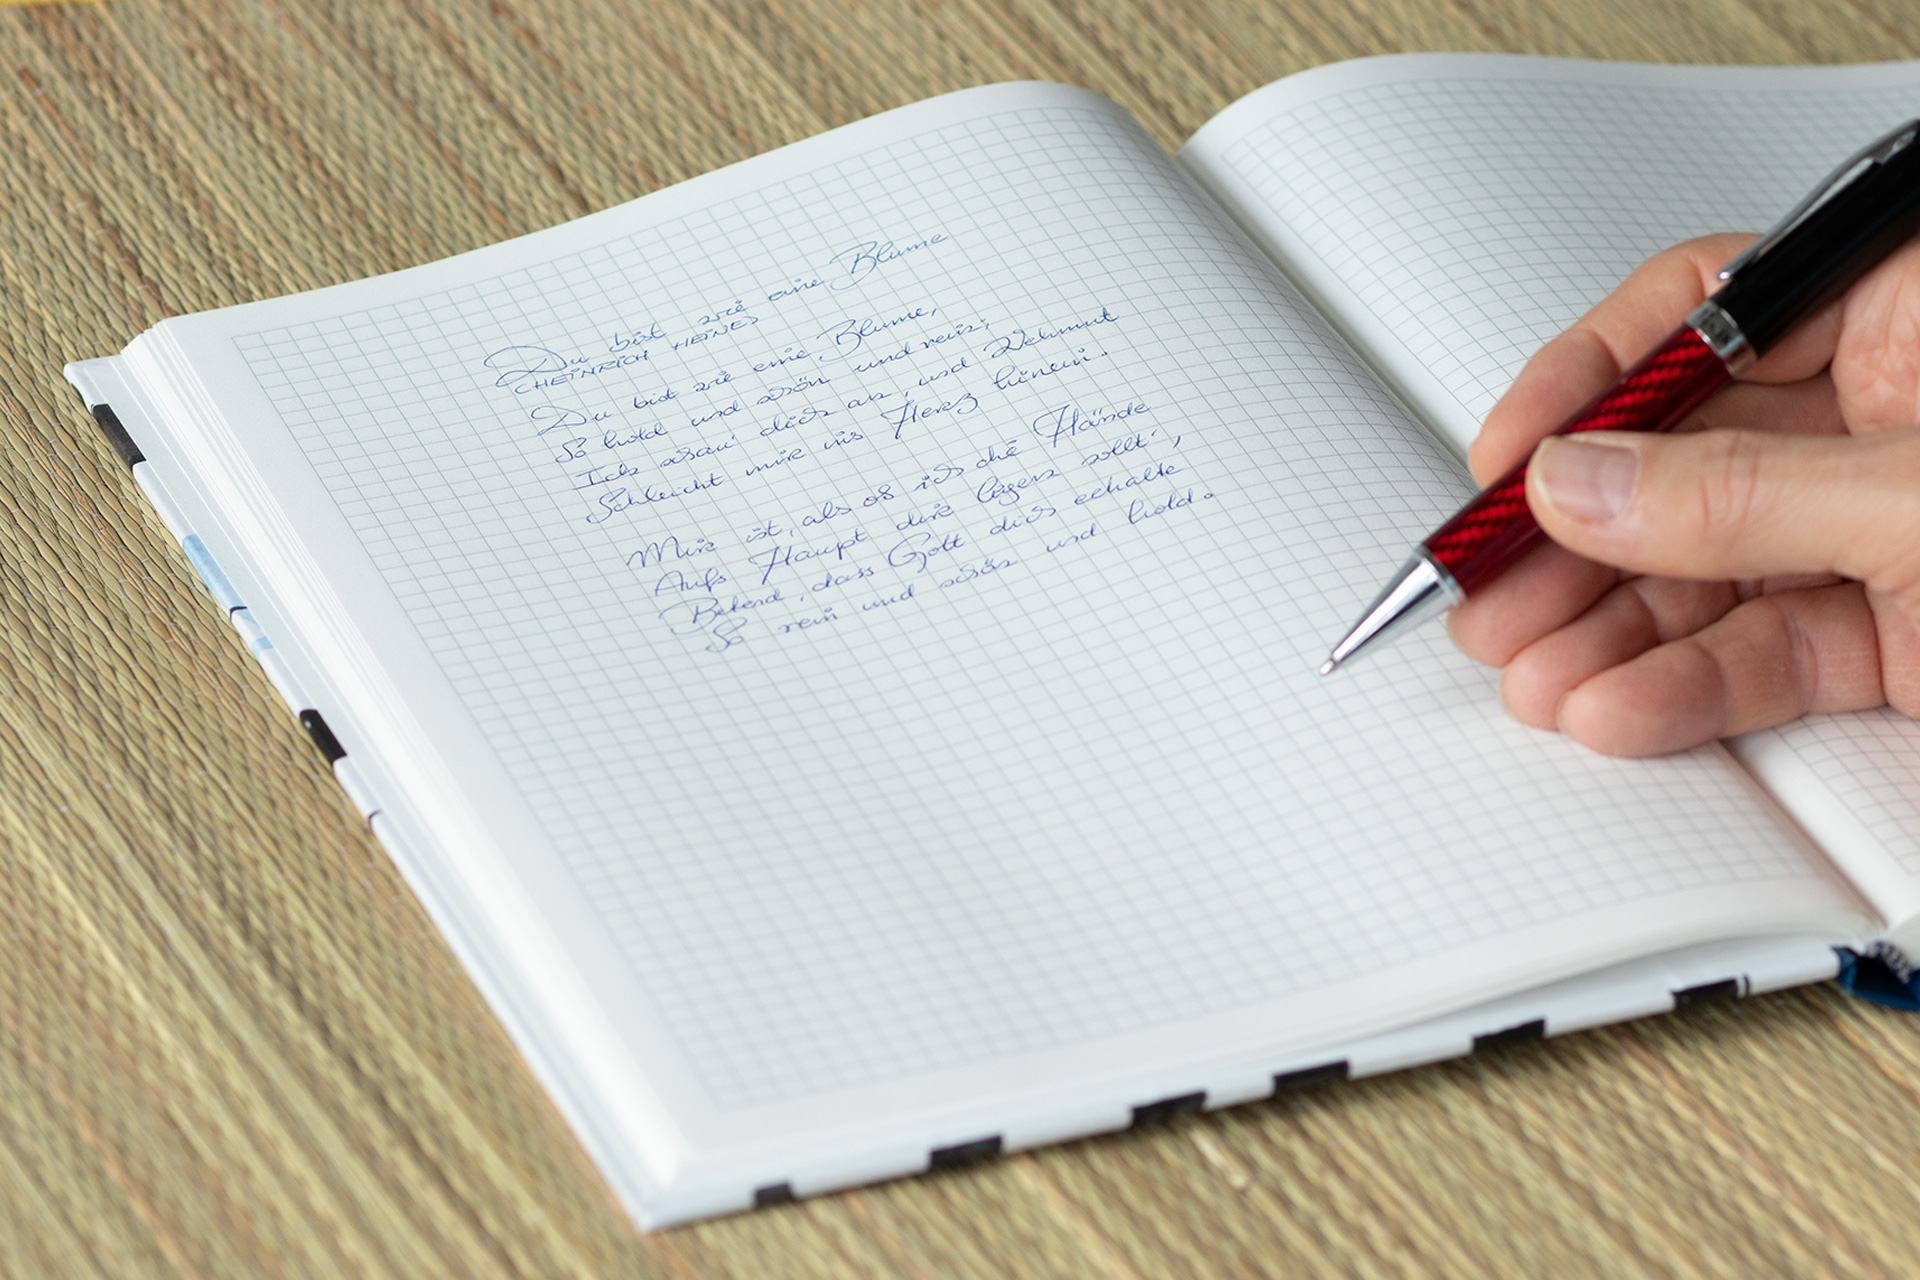 Du bist wie eine Blume
(HEINRICH HEINE)
Du bist wie eine Blume,
So hold und schön und rein;
Ich schau' dich an, und Wehmut
Schleicht mir ins Herz hinein.
Mir ist, als ob ich die Hände
Aufs Haupt dir legen sollt',
Betend, dass Gott dich erhalte
So rein und schön und hold.